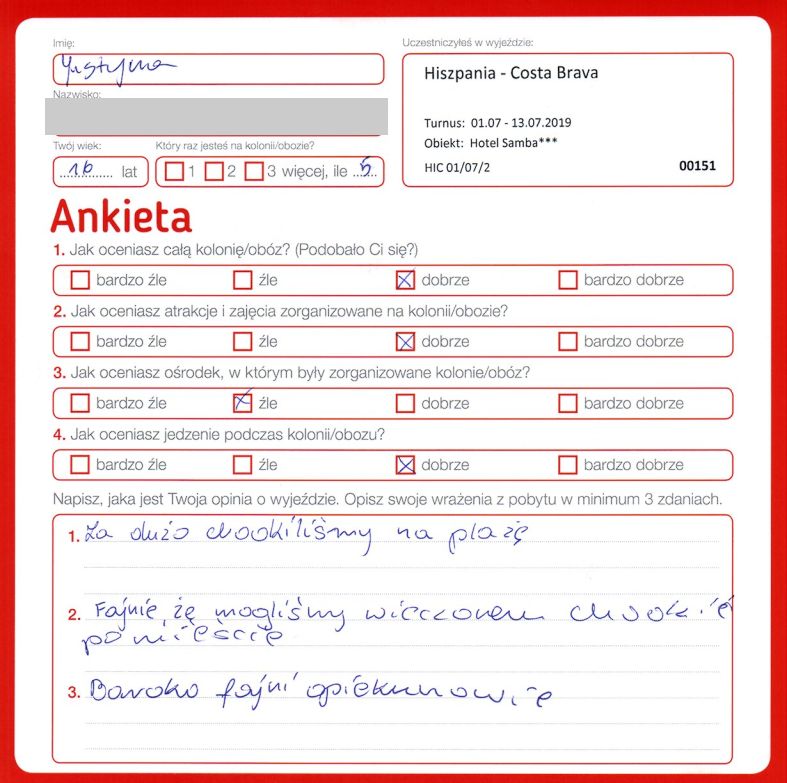 Imię:
Justyna
Nazwisko:
Twój wiek:
16 lat
Który raz jesteś na kolonii/obozie?
1 2 3 więcej, ile 5
Uczestniczyłeś w wyjeździe:
Hiszpania - Costa Brava
Turnus: 01.07 - 13.07.2019
Obiekt: Hotel Samba***
HIC 01/07/2 00151
Ankieta
1. Jak oceniasz całą kolonię/obóz? (Podobało Ci się?)
bardzo źle źle dobrze bardzo dobrze
2. Jak oceniasz atrakcje i zajęcia zorganizowane na kolonii/obozie?
bardzo źle źle dobrze bardzo dobrze
3. Jak oceniasz ośrodek, w którym były zorganizowane kolonie/obóz?
bardzo źle źle dobrze bardzo dobrze
4. Jak oceniasz jedzenie podczas kolonii/obozu?
bardzo źle źle dobrze bardzo dobrze
Napisz, jaka jest Twoja opinia o wyjeździe. Opisz swoje wrażenia z pobytu w minimum 3 zdaniach.
1. Za dużo chodziliśmy na plażę
2. Fajnie, żę mogliśmy wieczorem chodzić
po mieście
3. Bardzo fajni opiekunowie